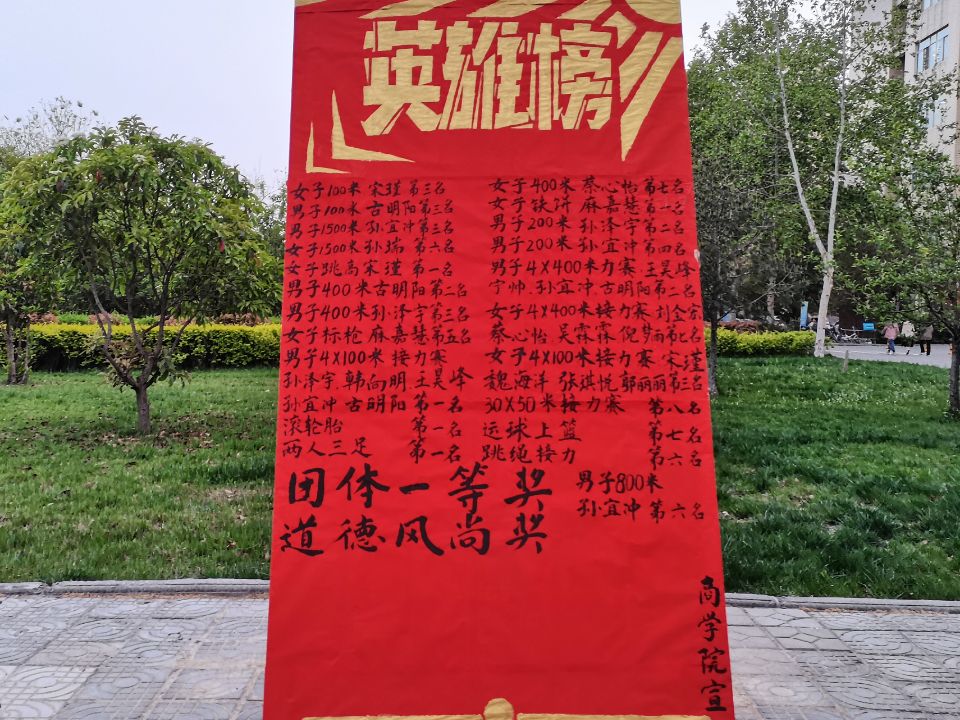 英雄榜
女子100米 宋瑾 第三名
男子100米 古明阳第三名
男子1500米孙宜冲第三名
女子1500米孙瑞 第六名
女子跳高宋瑾 第一名
男子400米古明阳第二名
男子400米孙泽宇第三名
女子标枪 麻嘉慧第五名
男子4X100米 接力赛
孙泽宇.韩向明.王昊峰
孙宜冲 古明阳 第一名
滚轮胎 第一名
两人三足 第一名
女子400米 蔡心怡 第七名
女子铁饼 麻嘉慧第一名
男子200米 孙泽宇第二名
男子200米 孙宜冲第四名
男子4X400米力赛.王昊峰
宁帅.孙宜冲.古明阳第二名
女子4X400米接力赛 刘金宏
蔡心怡.吴霖霖 倪 第七名
女子4X100米接力赛 宋瑾
魏海洋 张琪悦 郭丽丽第三名
30X50米接力赛 第八名
运球上篮 第七名
跳绳接力 第六名
男子800米
孙宜冲 第六名
团体一等奖
道德风尚奖
商学院宣